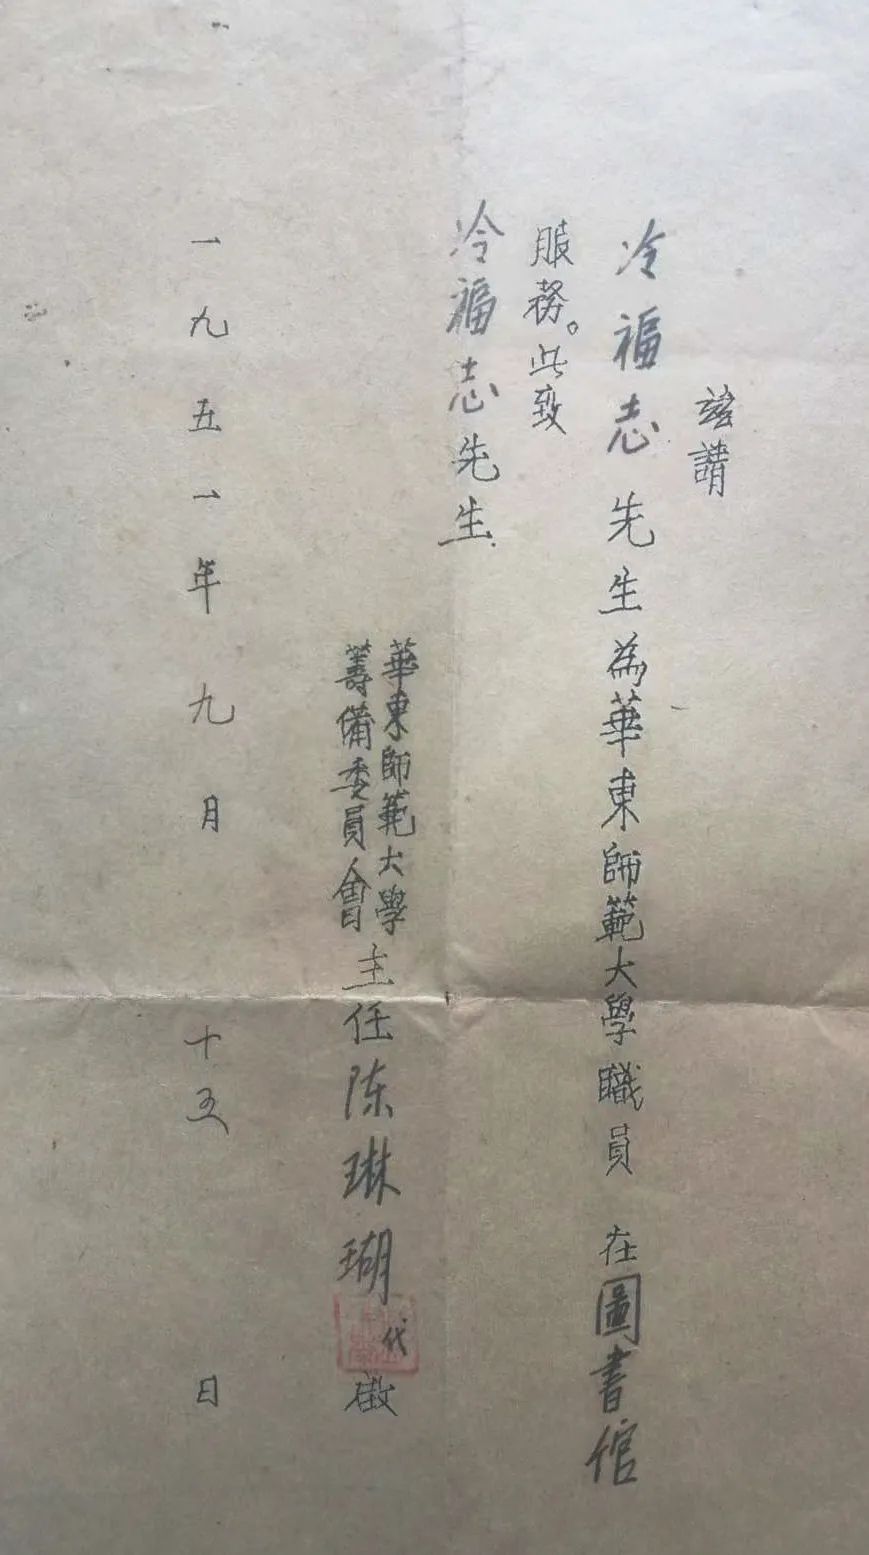 茲請
冷福志先生為華東師範大學職員 在圖書倌
服務。此致
冷福志先生
華東師範大學
籌備委員會主任陈琳瑚代啟
一九五一年九月十五日